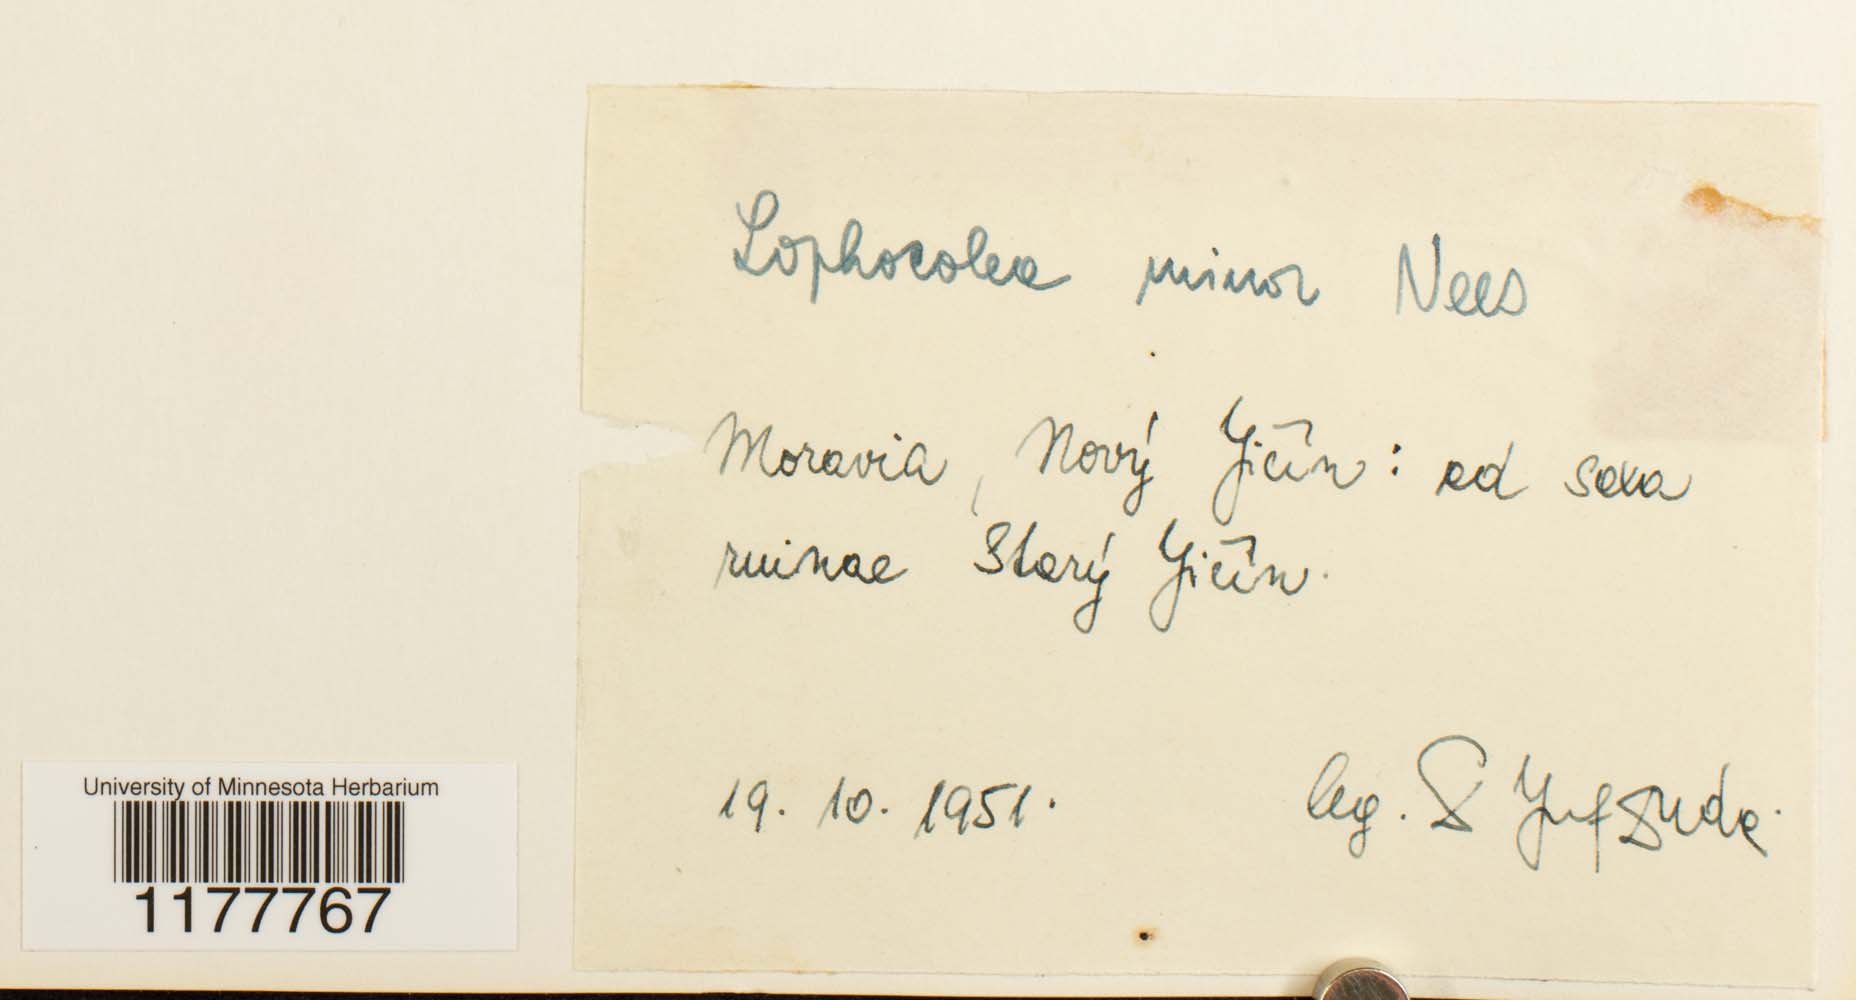 Lophocolea minor Nees
Moravia, Nový Jičín: ad saxa
ruinae Starý Jičín.
19. 10. 1951. leg.
University of Minnesota Herbarium
1177767